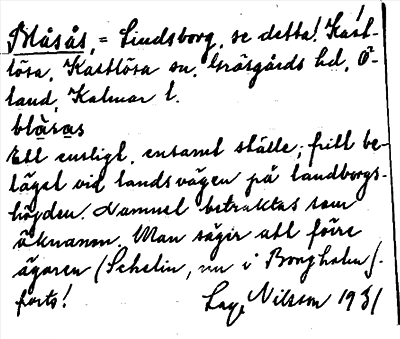 Blåsås, = Lindsborg, se detta! Kast-
lösa, Kastlösa sn, Gräsgårds hd, Ö-
land, Kalmar l.
blåsas
Ett ensligt, ensamt ställe; fritt be-
läget vid landsvägen på landborgs-
höjden. Namnet betraktas som
öknamn. Man säger att förre
ägaren (Schelin, nu i Borgholm).
forts! Lag. Nilsson 1931